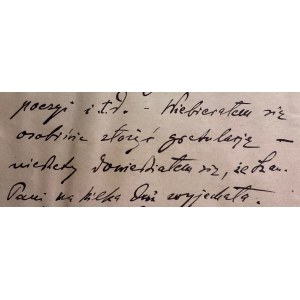 poezyi i t.d. – Wybierałem się
osobiście złożyć gratulację –
niestety dowiedziałem się, że Szan.
Pani na kilka dni wyjechała.